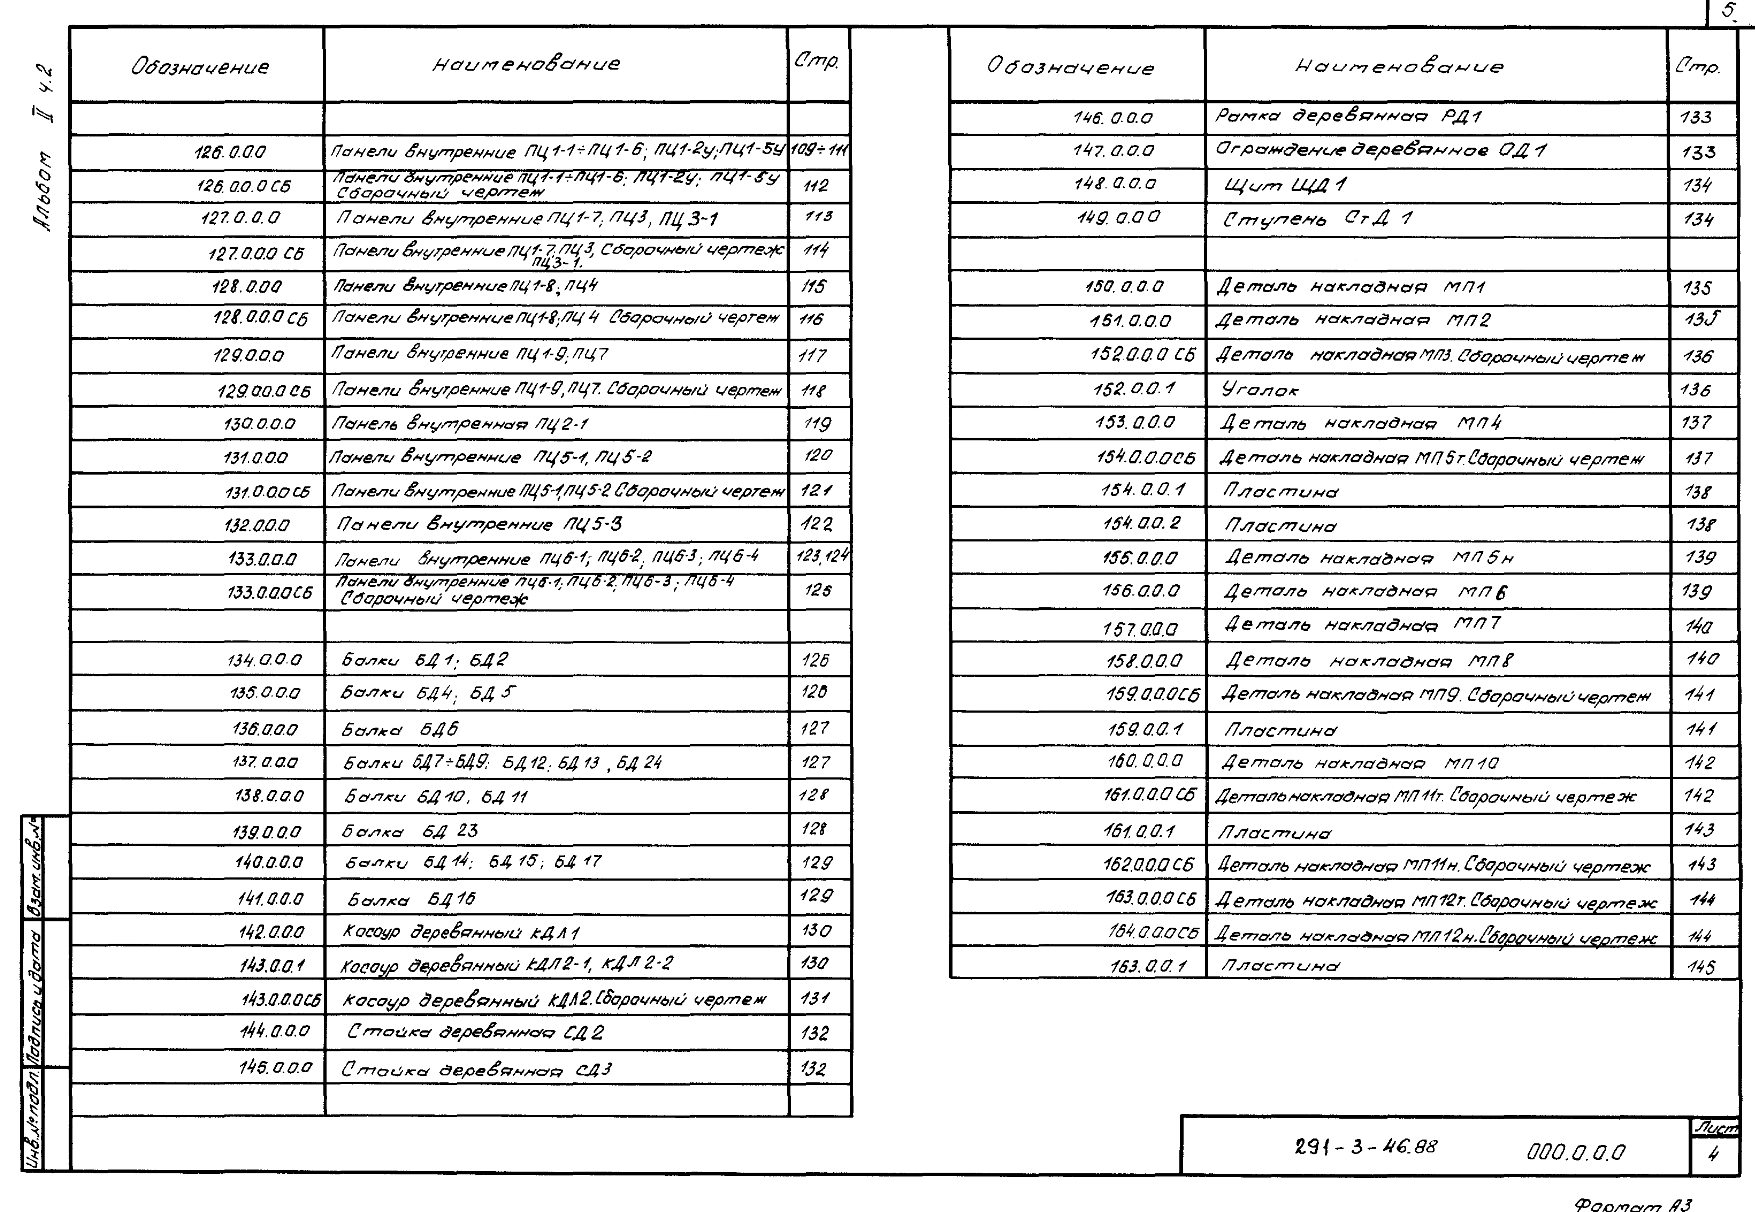 5.
Альбом II ч.2
Обозначение Наименование Стр.
126.0.0.0 Панели внутренние ПЦ1-1÷ПЦ1-6; ПЦ1-2у; ПЦ1-5у 109÷111
126.0.0.0 СБ Панели внутренние ПЦ1-1÷ПЦ1-6; ПЦ1-2у; ПЦ1-5у
Сборочный чертеж 112
127.0.0.0 Панели внутренние ПЦ1-7, ПЦ3, ПЦ3-1 113
127.0.0.0 СБ Панели внутренние ПЦ1-7, ПЦ3, Сборочный чертеж 114
ПЦ3-1.
128.0.0.0 Панели внутренние ПЦ1-8, ПЦ4 115
128.0.0.0 СБ Панели внутренние ПЦ1-8, ПЦ4 Сборочный чертеж 116
129.0.0.0 Панели внутренние ПЦ1-9, ПЦ7 117
129.0.0.0 СБ Панели внутренние ПЦ1-9, ПЦ7. Сборочный чертеж 118
130.0.0.0 Панель внутренная ПЦ2-1 119
131.0.0.0 Панели внутренние ПЦ5-1, ПЦ5-2 120
131.0.0.0 СБ Панели внутренние ПЦ5-1, ПЦ5-2 Сборочный чертеж 121
132.0.0.0 Панели внутренние ПЦ5-3 122
133.0.0.0 Панели внутренние ПЦ6-1; ПЦ6-2, ПЦ6-3; ПЦ6-4 123,124
133.0.0.0 СБ Панели внутренние ПЦ6-1; ПЦ6-2, ПЦ6-3; ПЦ6-4
Сборочный чертеж 125
134.0.0.0 Балки БД1; БД2 126
135.0.0.0 Балки БД4; БД5 126
136.0.0.0 Балка БД6 127
137.0.0.0 Балки БД7÷БД9; БД12; БД13, БД24 127
138.0.0.0 Балки БД10, БД11 128
139.0.0.0 Балка БД 23 128
140.0.0.0 Балки БД14; БД15; БД17 129
141.0.0.0 Балка БД16 129
142.0.0.0 Косоур деревянный КДЛ1 130
143.0.0.1 Косоур деревянный КДЛ2-1, КДЛ2-2 130
143.0.0.0 СБ Косоур деревянный КДЛ2. Сборочный чертеж 131
144.0.0.0 Стойка деревянная СД2 132
145.0.0.0 Стойка деревянная СД3 132
Обозначение Наименование Стр.
146.0.0.0 Рамка деревянная РД1 133
147.0.0.0 Ограждение деревянное ОД1 133
148.0.0.0 Щит ЩД1 134
149.0.0.0 Ступень СтД 1 134
150.0.0.0 Деталь накладная МП1 135
151.0.0.0 Деталь накладная МП2 135
152.0.0.0 СБ Деталь накладная МП3. Сборочный чертеж 136
152.0.0.1 Уголок 136
153.0.0.0 Деталь накладная МП4 137
154.0.0.0 СБ Деталь накладная МП5т. Сборочный чертеж 137
154.0.0.1 Пластина 138
154.0.0.2 Пластина 138
155.0.0.0 Деталь накладная МП5н 139
156.0.0.0 Деталь накладная МП6 139
157.0.0.0 Деталь накладная МП7 140
158.0.0.0 Деталь накладная МП8 140
159.0.0.0 СБ Деталь накладная МП9. Сборочный чертеж 141
159.0.0.1 Пластина 141
160.0.0.0 Деталь накладная МП10 142
161.0.0.0 СБ Деталь накладная МП11т. Сборочный чертеж 142
161.0.0.1 Пластина 143
162.0.0.0 СБ Деталь накладная МП11н. Сборочный чертеж 143
163.0.0.0 СБ Деталь накладная МП12т. Сборочный чертеж 144
164.0.0.0 СБ Деталь накладная МП12н. Сборочный чертеж 144
163.0.0.1 Пластина 145
Взам. инв. №
Подпись и дата
Инв. № подл.
291-3-46.88 000.0.0.0
Лист
4
Формат А3